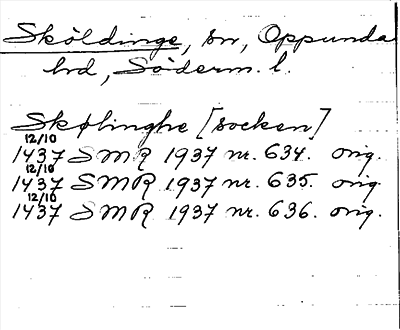 Sköldinge, sn, Oppunda
hd, Söderm. l.
Skølinghe [socken]
12/10
1437 SMR 1937 nr. 634. orig.
12/10
1437 SMR 1937 nr. 635. orig.
12/10
1437 SMR 1937 nr. 636. orig.